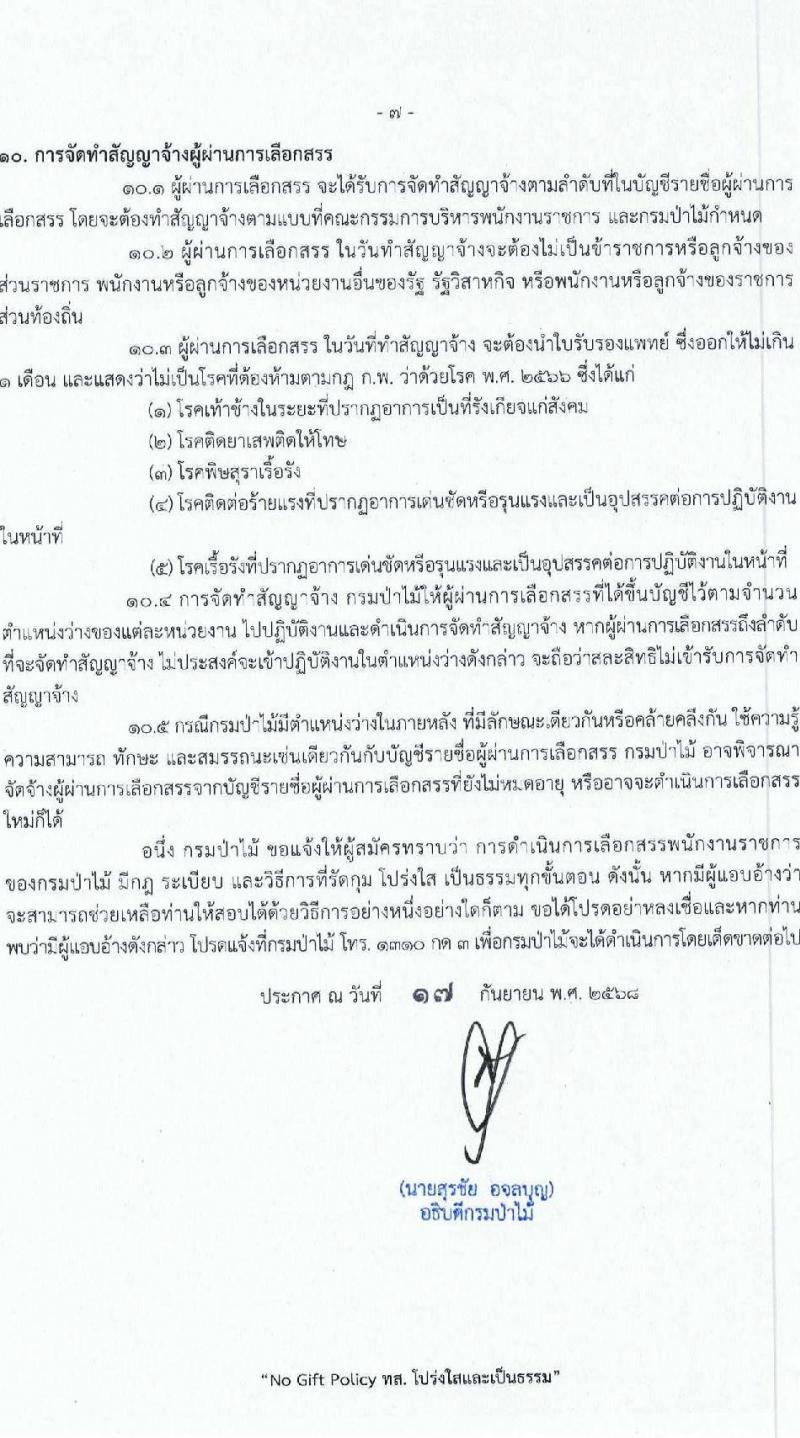 - ๗ -
๑๐. การจัดทำสัญญาจ้างผู้ผ่านการเลือกสรร
๑๐.๑ ผู้ผ่านการเลือกสรร จะได้รับการจัดทำสัญญาจ้างตามลำดับที่ในบัญชีรายชื่อผู้ผ่านการ
เลือกสรร โดยจะต้องทำสัญญาจ้างตามแบบที่คณะกรรมการบริหารพนักงานราชการ และกรมป่าไม้กำหนด
๑๐.๒ ผู้ผ่านการเลือกสรร ในวันทำสัญญาจ้างจะต้องไม่เป็นข้าราชการหรือลูกจ้างของ
ส่วนราชการ พนักงานหรือลูกจ้างของหน่วยงานอื่นของรัฐ รัฐวิสาหกิจ หรือพนักงานหรือลูกจ้างของราชการ
ส่วนท้องถิ่น
๑๐.๓ ผู้ผ่านการเลือกสรร ในวันที่ทำสัญญาจ้าง จะต้องนำใบรับรองแพทย์ ซึ่งออกให้ไม่เกิน
๑ เดือน และแสดงว่าไม่เป็นโรคที่ต้องห้ามตามกฎ ก.พ. ว่าด้วยโรค พ.ศ. ๒๕๖๖ ซึ่งได้แก่
(๑) โรคเท้าช้างในระยะที่ปรากฏอาการเป็นที่รังเกียจแก่สังคม
(๒) โรคติดยาเสพติดให้โทษ
(๓) โรคพิษสุราเรื้อรัง
(๔) โรคติดต่อร้ายแรงที่ปรากฏอาการเด่นชัดหรือรุนแรงและเป็นอุปสรรคต่อการปฏิบัติงาน
ในหน้าที่
(๕) โรคเรื้อรังที่ปรากฏอาการเด่นชัดหรือรุนแรงและเป็นอุปสรรคต่อการปฏิบัติงานในหน้าที่
๑๐.๔ การจัดทำสัญญาจ้าง กรมป่าไม้ให้ผู้ผ่านการเลือกสรรที่ได้ขึ้นบัญชีไว้ตามจำนวน
ตำแหน่งว่างของแต่ละหน่วยงาน ไปปฏิบัติงานและดำเนินการจัดทำสัญญาจ้าง หากผู้ผ่านการเลือกสรรถึงลำดับ
ที่จะจัดทำสัญญาจ้าง ไม่ประสงค์จะเข้าปฏิบัติงานในตำแหน่งว่างดังกล่าว จะถือว่าสละสิทธิไม่เข้ารับการจัดทำ
สัญญาจ้าง
๑๐.๕ กรณีกรมป่าไม้มีตำแหน่งว่างในภายหลัง ที่มีลักษณะเดียวกันหรือคล้ายคลึงกัน ใช้ความรู้
ความสามารถ ทักษะ และสมรรถนะเช่นเดียวกันกับบัญชีรายชื่อผู้ผ่านการเลือกสรร กรมป่าไม้ อาจพิจารณา
จัดจ้างผู้ผ่านการเลือกสรรจากบัญชีรายชื่อผู้ผ่านการเลือกสรรที่ยังไม่หมดอายุ หรืออาจจะดำเนินการเลือกสรร
ใหม่ก็ได้
อนึ่ง กรมป่าไม้ ขอแจ้งให้ผู้สมัครทราบว่า การดำเนินการเลือกสรรพนักงานราชการ
ของกรมป่าไม้ มีกฎ ระเบียบ และวิธีการที่รัดกุม โปร่งใส เป็นธรรมทุกขั้นตอน ดังนั้น หากมีผู้แอบอ้างว่า
จะสามารถช่วยเหลือท่านให้สอบได้ด้วยวิธีการอย่างหนึ่งอย่างใดก็ตาม ขอได้โปรดอย่าหลงเชื่อและหากท่าน
พบว่ามีผู้แอบอ้างดังกล่าว โปรดแจ้งที่กรมป่าไม้ โทร. ๑๓๑๐ กด ๓ เพื่อกรมป่าไม้จะได้ดำเนินการโดยเด็ดขาดต่อไป
ประกาศ ณ วันที่ ๑๗ กันยายน พ.ศ. ๒๕๖๘
(นายสุรชัย อจลบุญ)
อธิบดีกรมป่าไม้
“No Gift Policy ทส. โปร่งใสและเป็นธรรม”